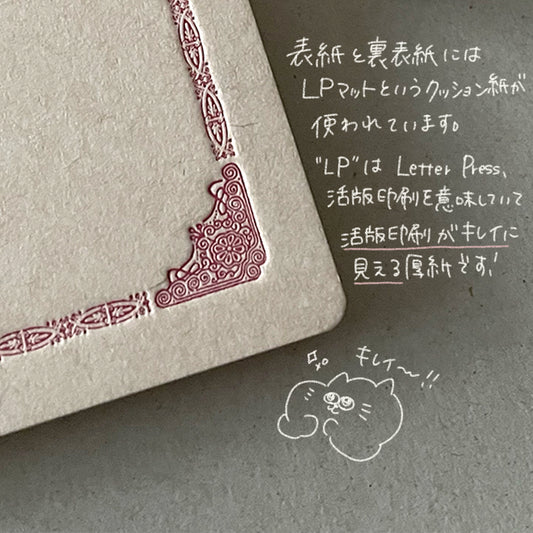 表紙と裏表紙には
LPマットというクッション紙が
使われています。
"LP"は Letter Press、
活版印刷を意味していて
活版印刷がキレイに
見える厚紙です！
キレイ〜!!